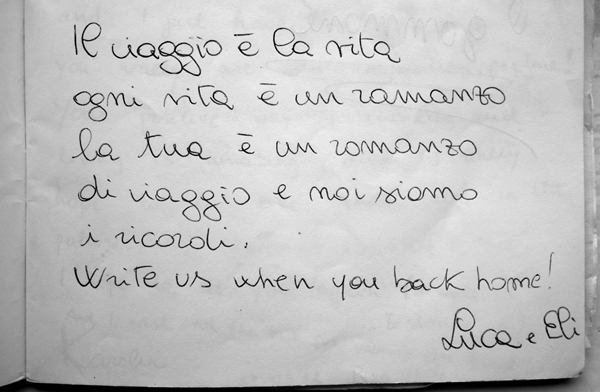 Il viaggio è la vita
ogni vita è un ramanzo
la tua è un romanzo
di viaggio e noi siamo
i ricordi.
Write us when you back home!
Luca e Eli